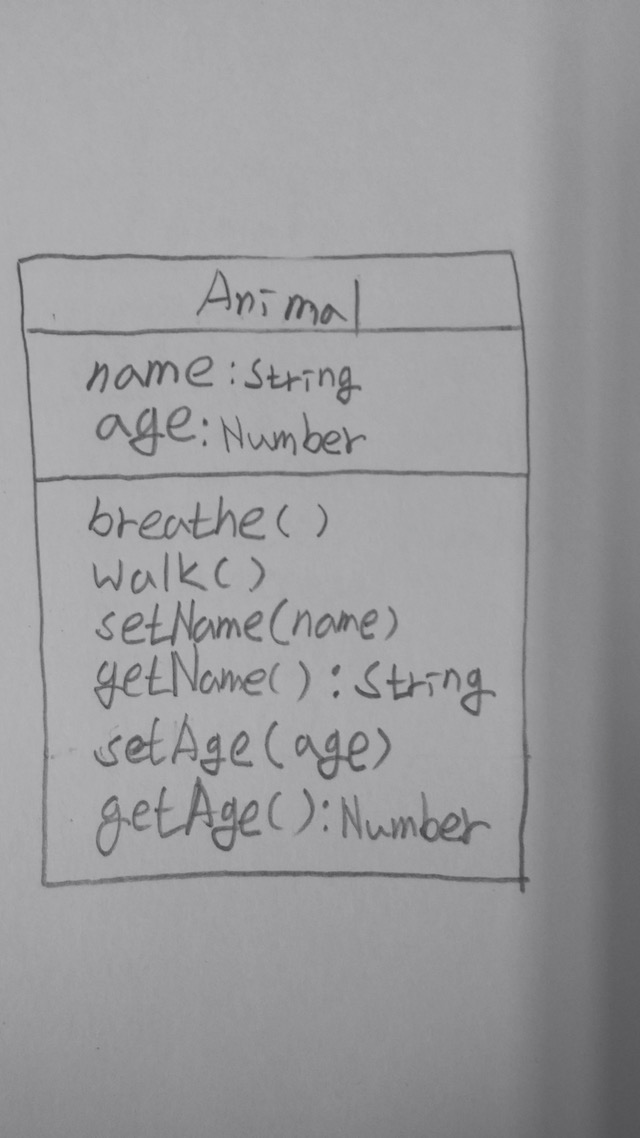 Animal
name:String
age:Number
breathe()
walk()
setName(name)
getName():String
setAge(age)
getAge():Number